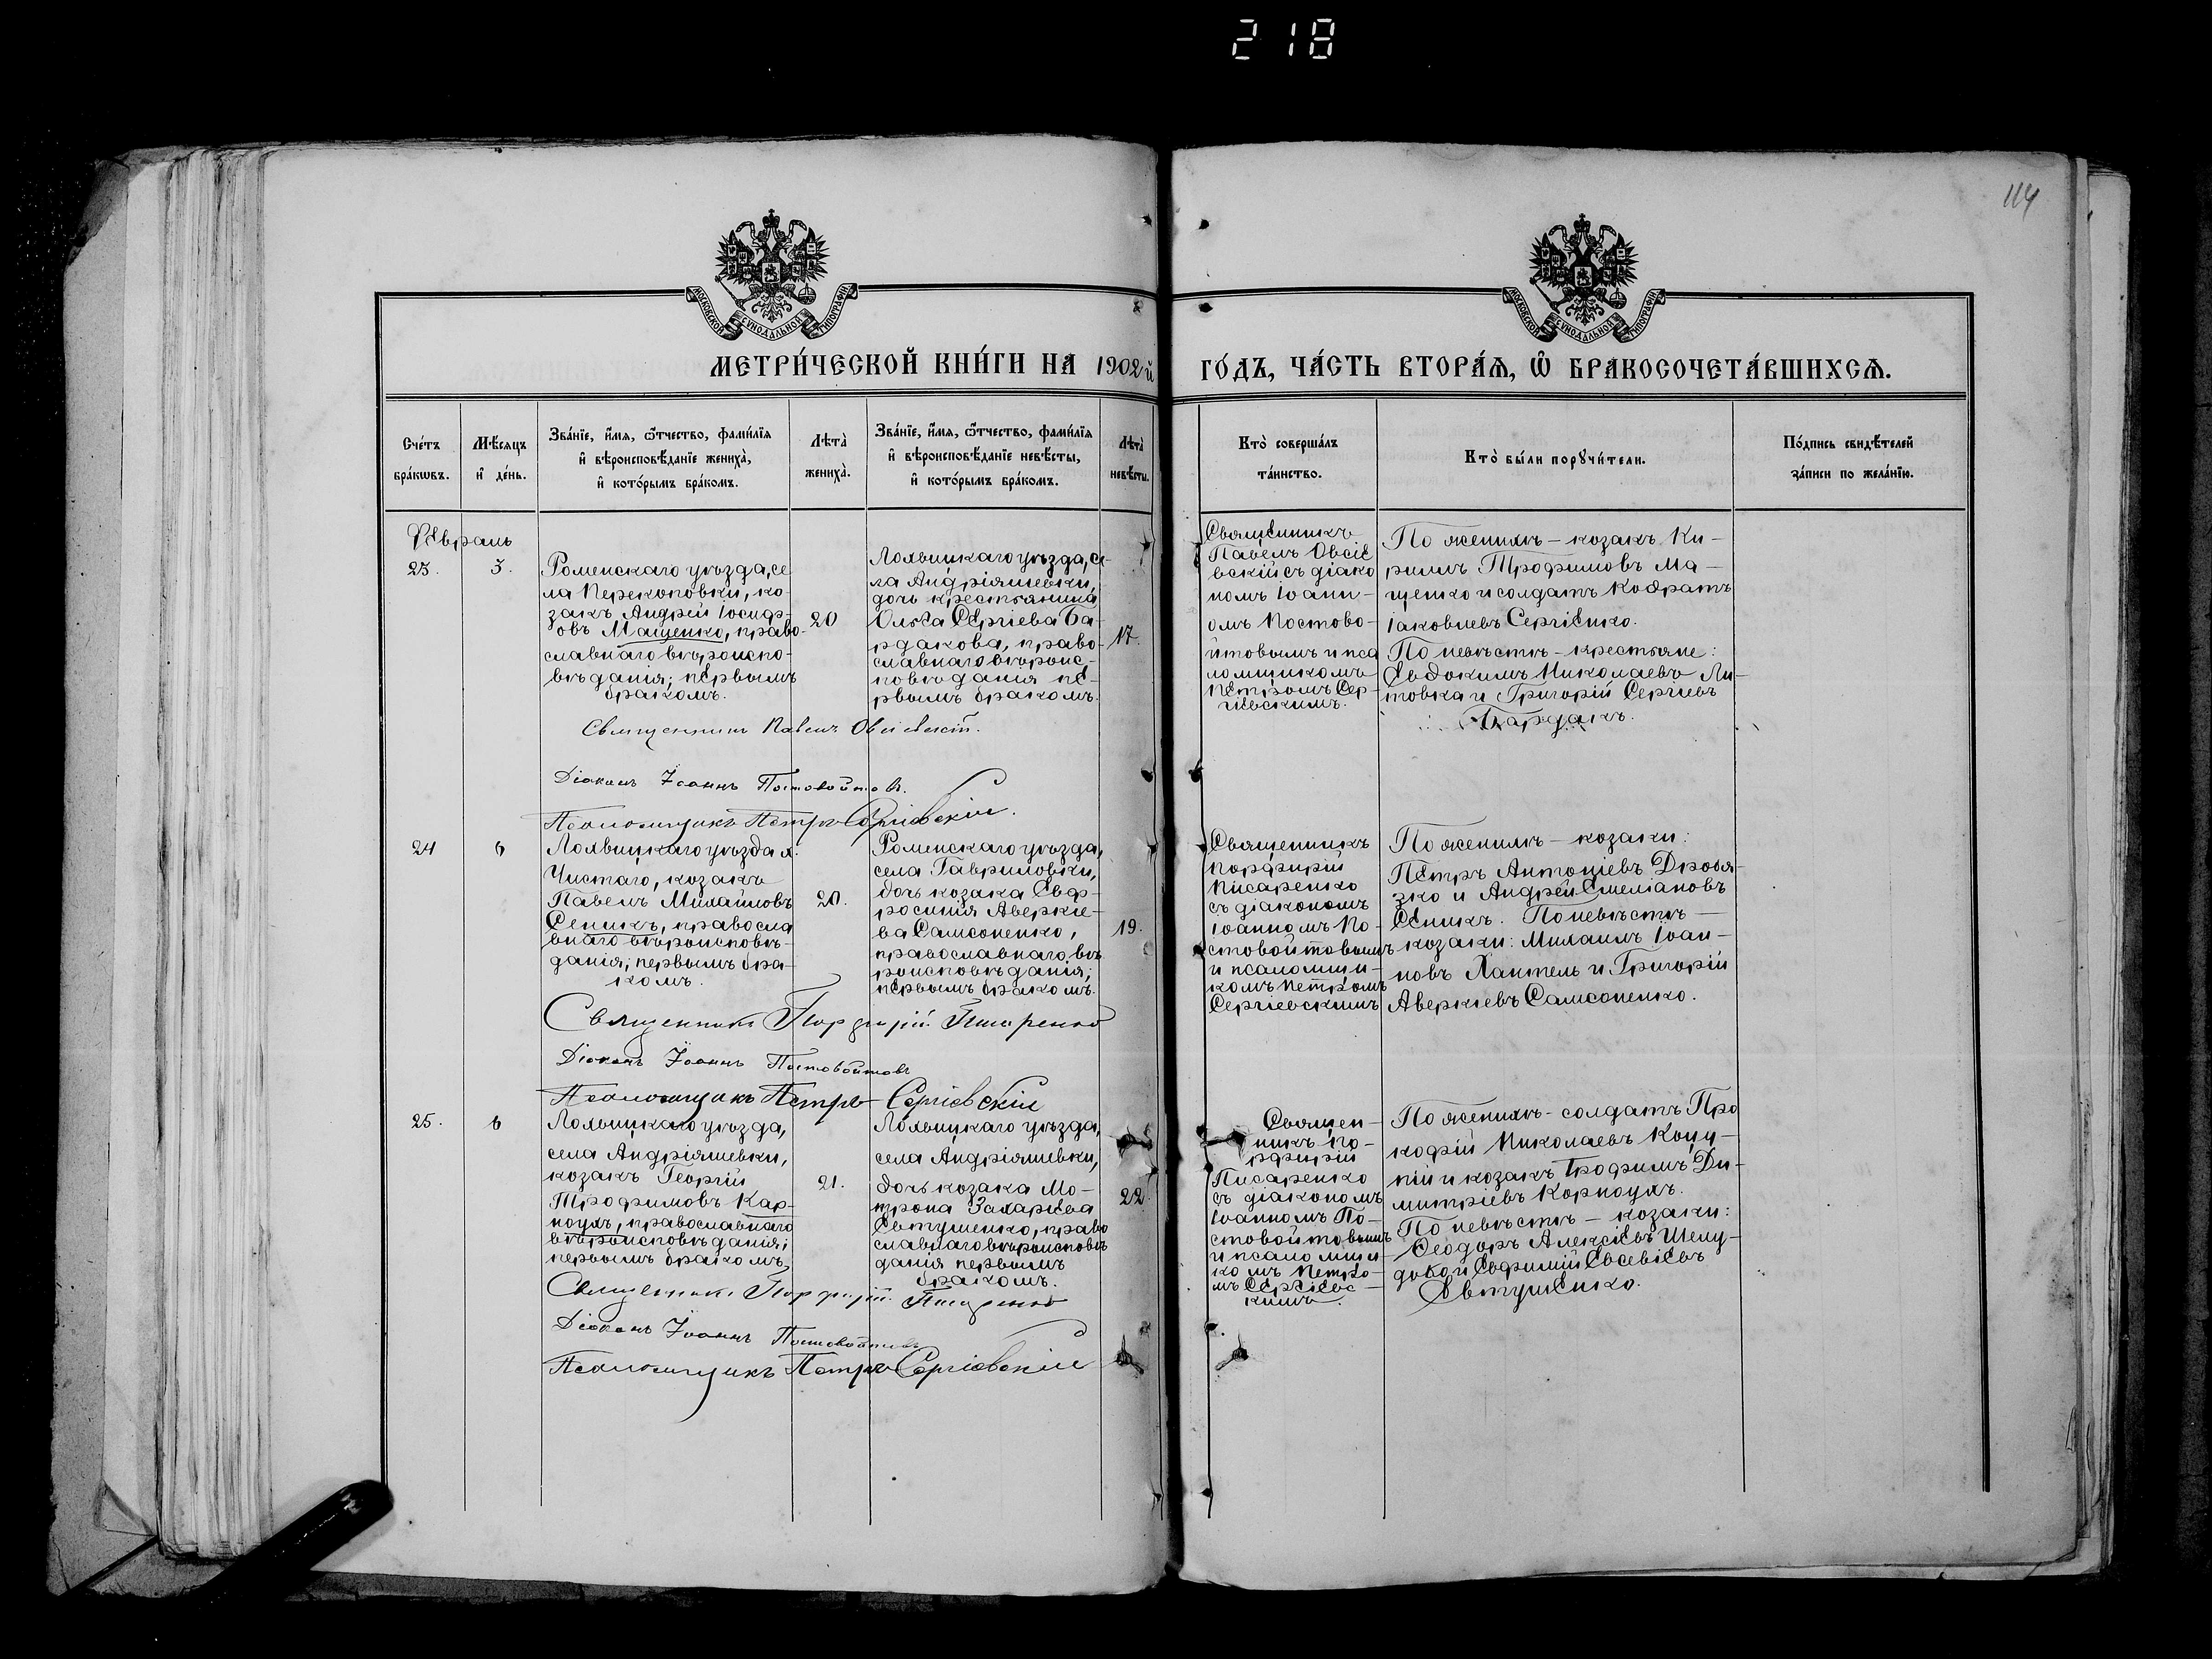 218
114
МОСКОВСКОЙ СУНОДАЛЬНОЙ ТИПОГРАФІИ
МОСКОВСКОЙ СУНОДАЛЬНОЙ ТИПОГРАФІИ
МЕТРИ́ЧЕСКОЙ КНИ́ГИ НА 1902й ГО́ДЪ, ЧА́СТЬ ВТОРА́Ѧ, Ѽ БРАКОСОЧЕТА́ВШИХСѦ.
Сче́тъ
бра́кѡвъ.
Мѣ́сяцъ
и҆ де́нь.
Зва́нїе, и҆́мя, ѻ҆́тчество, фами́лїя
и҆ вѣроисповѣ́данїе жениха̀,
и҆ кото́рымъ бра́комъ.
Лѣта̀
жениха̀.
Зва́нїе, и҆́мя, ѻ҆́тчество, фами́лїя
и҆ вѣроисповѣ́данїе невѣ́сты,
и҆ кото́рымъ бра́комъ.
Лѣта̀
невѣ́сты.
Кто̀ соверша́лъ
та́инство.
Кто̀ бы́ли порꙋчи́тели.
По́дпись свидѣ́телей
за́писи по жела́нїю.
Февраль
23.
3.
Роменскаго уѣзда, се
ла Перекоповки, ко-
закъ Андрей Іосиф-
овъ Мащенко, право-
славнаго вѣроиспо-
вѣданія; первымъ
бракомъ.
20
Лохвицкаго уѣзда, се-
ла Андріяшевки,
дочь крестьянина
Ольга Сергіева Ба-
рдакова, право-
славнаго вѣроис-
повѣданія пе-
рвымъ бракомъ.
17.
Священникъ
Павелъ Овсіе
вскій съ діако
номъ Іоанн-
омъ Постово-
йтовымъ и пса
ломщикомъ
Петромъ Сер-
гіевскимъ.
По женихѣ – козакъ Ки-
риллъ Трофимовъ Ма-
щенко и солдатъ Кодратъ
Іаковлевъ Сергіенко.
По невѣстѣ – крестьяне:
Евдокимъ Николаевъ Ли-
товка и Григорій Сергіевъ
Бардакъ.
Священникъ Павелъ Овсіевскій.
Діаконъ Іоаннъ Постовойтовъ.
Псаломщикъ Петръ Сергіевскій.
24
6
Лохвицкаго уѣзда х.
Чистаго, козакъ
Павелъ Михайловъ
Сеникъ, правосла
внаго вѣроисповѣ-
данія; первымъ бра-
комъ.
20.
Роменскаго уѣзда,
села Гавриловки,
дочь козака Евф-
росинія Аверкіе-
ва Самсоненко,
православнаго вѣ
роисповѣданія;
первымъ бракомъ.
19.
Священникъ
Порфирій
Писаренко
съ діакономъ
Іоанномъ По-
стовойтовымъ
и псаломщи-
комъ Петромъ
Сергіевскимъ
По женихѣ – козаки:
Петръ Антоніевъ Дробя-
зко и Андрей Емеліановъ
Сеникъ. По невѣстѣ –
козаки: Михаилъ Іоан-
новъ Хантель и Григорій
Аверкіевъ Самсоненко.
Священникъ Порфирій Писаренко
Діаконъ Іоаннъ Постовойтовъ
Псаломщикъ Петръ Сергіевскій
25.
6
Лохвицкаго уѣзда,
села Андріяшевки,
козакъ Георгій
Трофимовъ Кар-
ноухъ, православнаго
вѣроисповѣданія;
первымъ бракомъ
21.
Лохвицкаго уѣзда,
села Андріяшевки,
дочь козака Мо-
трона Захаріева
Евтушенко, право
славнаго вѣроисповѣ
данія первымъ
бракомъ.
22.
Священ-
никъ По-
рфирій
Писаренко
съ діакономъ
Іоанномъ По-
стовойтовымъ
и псаломщи-
комъ Петро-
мъ Сергіевс-
кимъ.
По женихѣ – солдатъ Про
кофій Николаевъ Коцу-
пій и козакъ Трофимъ Ди-
митріевъ Корноухъ.
По невѣстѣ – козаки:
Ѳеодоръ Алексіевъ Шелу-
дько и Евфимій Евсевіевъ
Евтушенко.
Священникъ Порфирій Писаренко
Діаконъ Іоаннъ Постовойтовъ
Псаломщикъ Петръ Сергіевскій